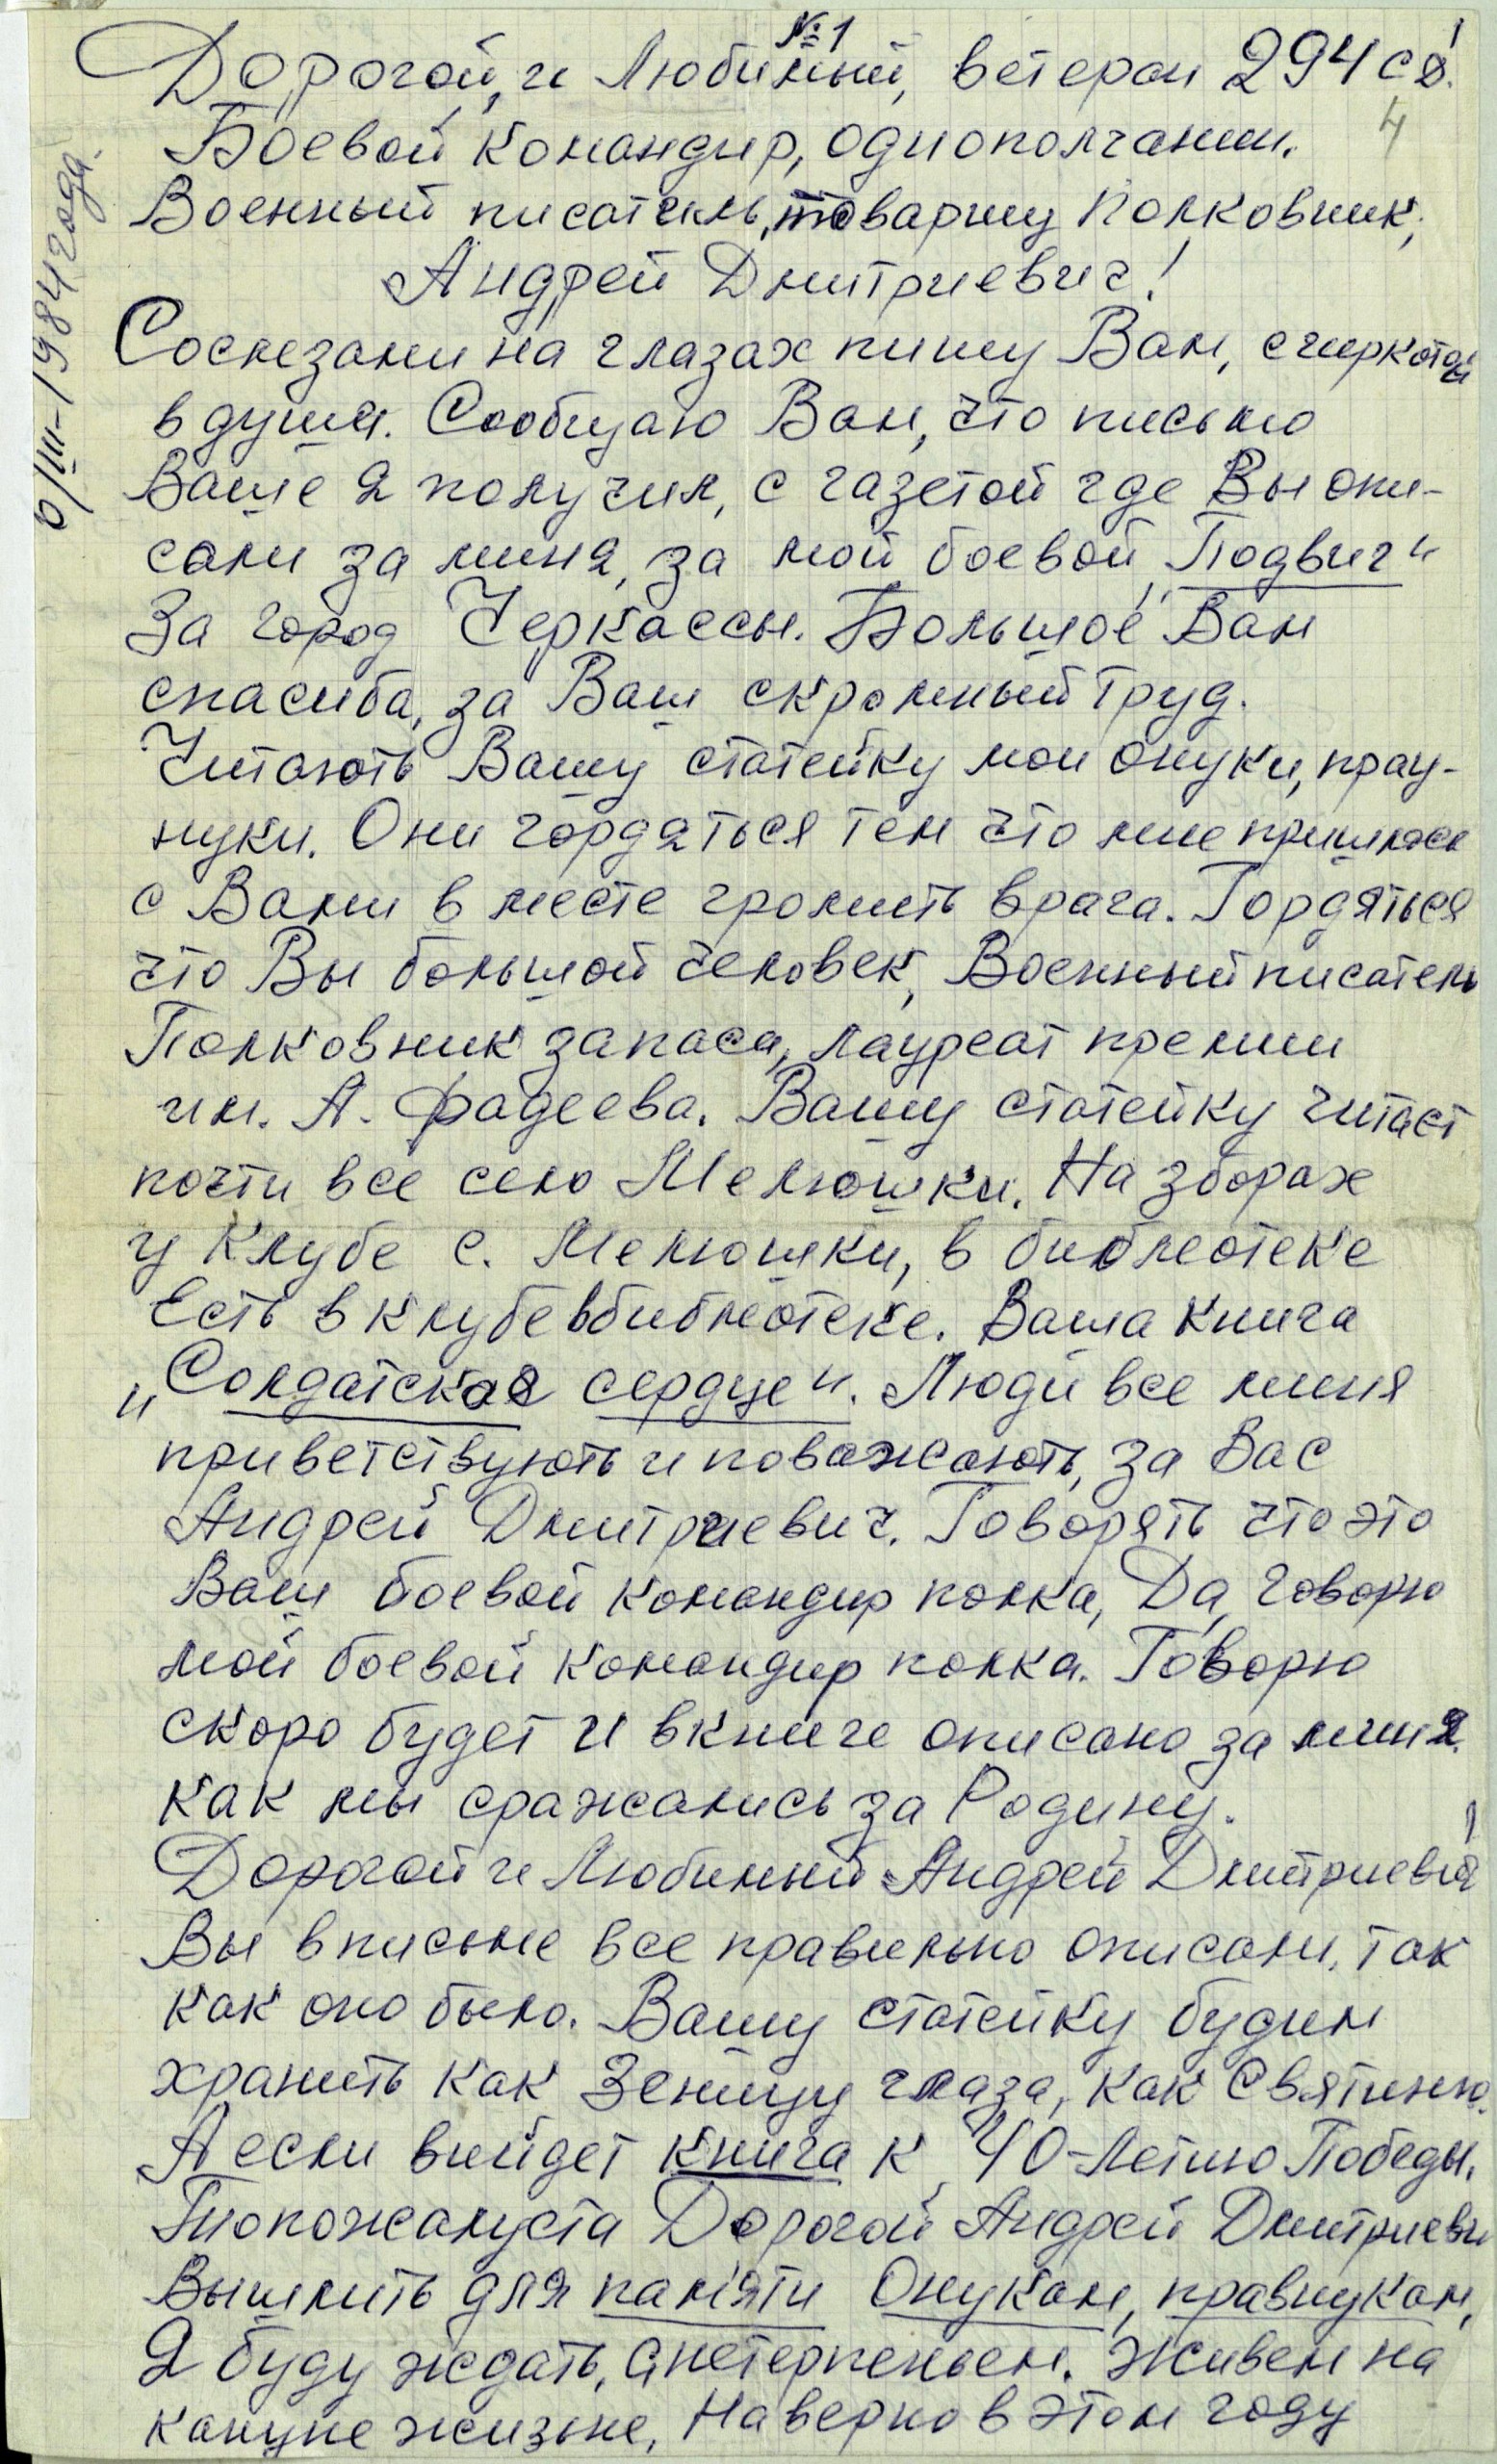 №1
Дорогой, и Любимый, ветеран 294 сд!
4
Боевой командир, однополчанин.
Военный писатель, товарищ Полковник,
Андрей Дмитриевич!
6/III-1984 года.
Сослезами на глазах пишу Вам, счиркотой
в души. Сообщаю Вам, что письмо
Ваше я получил, с газетой где Вы опи-
сали за миня, за мой боевой „Подвиг"
За город Черкассы. Большое Вам
спасиба, за Ваш скромный труд.
Читають Вашу статейку мои онуки, прау-
нуки. Они гордяться тем что мне пришлось
с Вами в месте громить врага. Гордяться
что Вы большой человек, Военный писатель
Полковник запаса, лауреат премии
им. А. Фадеева. Вашу статейку читает
почти все село Мелюшки. На зборах
у клубе с. Мелюшки, в библеотеке
Есть в клубе вбиблеотеке. Ваша книга
„Солдатская сердце". Люди все миня
приветствують и поважають, за Вас
Андрей Дмитриевич. Говорять что это
Ваш боевой командир полка, Да, говорю
мой боевой командир полка. Говорю
скоро будет и вкниге описано за миня.
как мы сражались за Родину.
Дорогой и Любимый Андрей Дмитриевич!
Вы вписме все правильно описали, так
как оно было. Вашу статейку будим
хранить как Зеницу глаза, как Святиню.
А если вийдет книга к 40-Летию Победы,
Топожалуста Дорогой Андрей Дмитриевич
Вышлить для памяти Онукам, правнукам,
Я буду ждать, снетерпеньем. Живем на
кануне жизне, Наверно в этом году